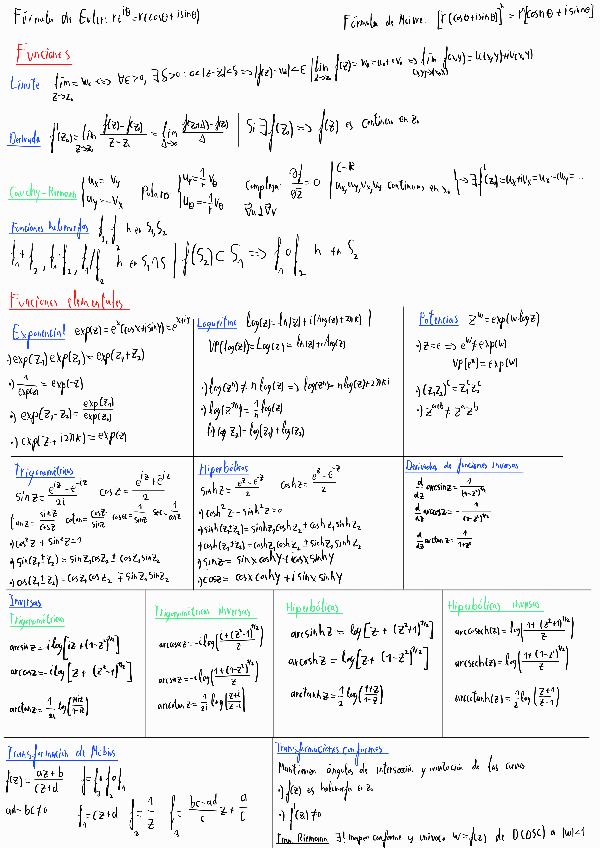 Fórmula de Euler: re^{iθ}=r(cosθ+isinθ)
Fórmula de Moivre: [r(cosθ+isinθ)]^n = r^n[cosnθ+isinnθ]
Funciones
Límite lim_{z→z₀} = w₀ <=> ∀ε>0, ∃δ>0: 0<|z-z₀|<δ => |f(z)-w₀|<ε
Derivada f'(z₀)=lim_{z→z₀} (f(z)-f(z₀))/(z-z₀) = lim_{Δ→0} | Si ∃f'(z₀) => f(z) es continua en z₀
Cauchy-Riemann { u_x = v_y u_y = -v_x Polares { u_r = 1/r v_θ u_θ = -1/r v_θ Compleja: ∂f/∂z̄ = 0 ∇u⊥∇v | C-R u_x, u_y, v_x, v_y continuas en z₀ } => ∃f'(z)=u_x+iv_x=u_x-iu_y=...
Funciones holomorfas f₁, f₂ h en S₁, S₂
f₁+f₂, f₁·f₂, f₁/f₂ h en S₁∩S | f(S₂)⊂S₁ => f₁∘f₂ h en S₂
Funciones elementales
Exponencial exp(z)=e^x(cosx+isiny)=e^{x+iy}
·) exp(z₁)exp(z₂)=exp(z₁+z₂)
·) 1/exp(z) = exp(-z)
·) exp(z₁-z₂)= exp(z₁)/exp(z₂)
·) exp(z+i2πk)=exp(z)
Logaritmo log(z)=ln|z|+i(Arg(z)+2πk)
VP(log(z))=Log(z)=ln|z|+iArg(z)
·) log(z^n)≠n log(z) => log(z^n)=nlog(z)+2πki
·) log(z^{1/n})=1/n log(z)
log(z₁z₂)=log(z₁)+log(z₂)
Potencias z^w=exp(w·logz)
·) z=e => e^w≠exp(w)
VP[e^w]=exp(w)
·) (z₁z₂)^c=z₁^c z₂^c
·) z^{a+b}≠z^a z^b
Trigonométricas
sin z=(e^{iz}-e^{-iz})/2i cos z=(e^{iz}+e^{iz})/2
tanz=sinz/cosz cotan=cosz/sinz cosec=1/sinz sec=1/cosz
·) cos²z+sin²z=1
·) sin(z₁±z₂)=sinz₁cosz₂±cosz₁sinz₂
·) cos(z₁±z₂)=cosz₁cosz₂∓sinz₁sinz₂
Hiperbólicas
sinhz=(e^z-e^{-z})/2 coshz=(e^z-e^{-z})/2
·) cosh²z-sinh²z=0
·) sinh(z₁±z₂)=sinhz₁coshz₂±coshz₁sinhz₂
·) cosh(z₁±z₂)=coshz₁coshz₂±sinhz₁sinhz₂
·) sinz=sinxcoshy+icosxsinhy
·) cosz=cosxcoshy+isinxsinhy
Derivadas de funciones inversas
d/dz arcsinz=1/(1-z²)^{1/2}
d/dz arccosz=-1/(1-z²)^{1/2}
d/dz arctanz=1/(1+z²)
Inversas
Trigonométricas
arcsin z=-ilog[iz+(1-z²)^{1/2}]
arccosz=-ilog[z+(z²-1)^{1/2}]
arctanz=1/2i log
Trigonométricas inversas
arccosecz=-ilog((i+(z²-1)^{1/2})/z)
arcsecz=-ilog((1+(1-z²)^{1/2})/z)
arccotanz=1/2i log((z+i)/(z-i))
Hiperbólicas
arcsinhz=log[z+(z²+1)^{1/2}]
arcoshz=log[z+(1-z²)^{1/2}]
arctanhz=1/2 log((1+z)/(1-z))
Hiperbólicas inversas
arccosech(z)=log((1+(z²+1)^{1/2})/z)
arcsech(z)=log((1+(1-z²)^{1/2})/z)
arccotanh(z)=1/2 log((z+1)/(z-1))
Transformación de Möbius
f(z)=(az+b)/(cz+d) f=f₃∘f₂∘f₁
ad-bc≠0 f₁=cz+d f₂=1/z f₃=(bc-ad)/c z+a/c
Transformaciones conformes
Mantienen ángulos de intersección y orientación de las curvas
·) f(z) es holomorfa en z₀
·) f'(z)≠0
Trans. Riemann ∃! mapeo conforme y unívoco w=f(z) de D(DSC) a |w|<1